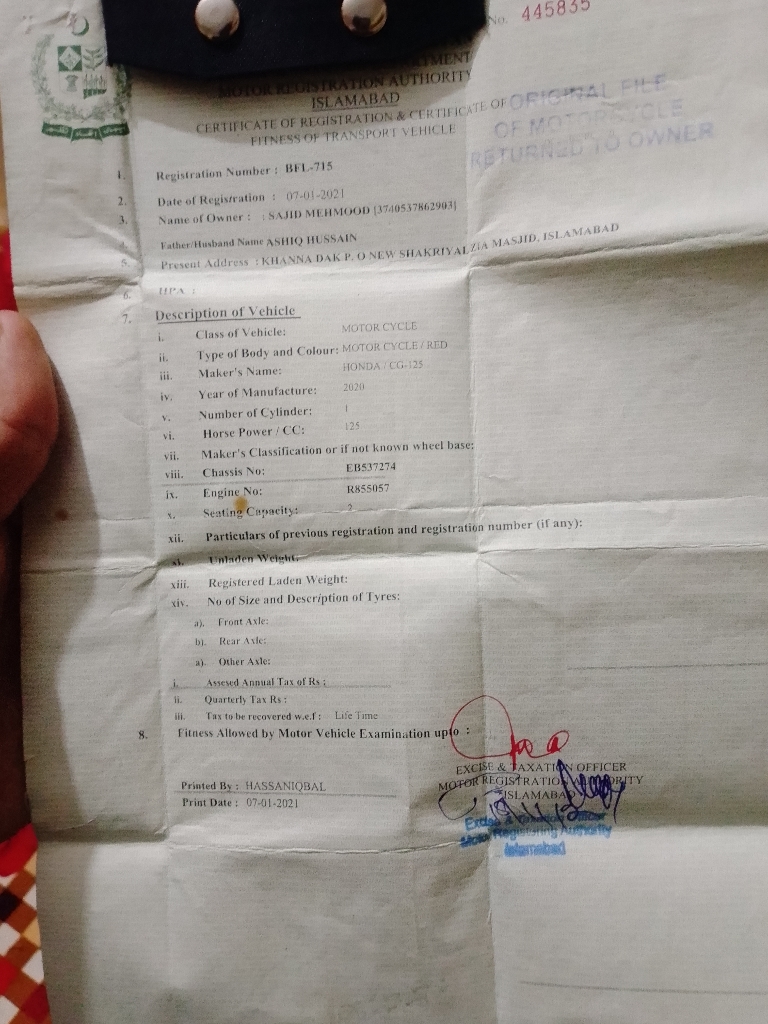 No. 445835
MENT
MOTOR REGISTRATION AUTHORITY
ISLAMABAD
CERTIFICATE OF REGISTRATION & CERTIFICATE OF
FITNESS OF TRANSPORT VEHICLE
ORIGINAL FILE
OF MOTORCYCLE
RETURNED TO OWNER
1. Registration Number : BFL-715
2. Date of Registration : 07-01-2021
3. Name of Owner : : SAJID MEHMOOD [3740537862903]
4. Father/Husband Name ASHIQ HUSSAIN
5. Present Address : KHANNA DAK P. O NEW SHAKRIYAL ZIA MASJID, ISLAMABAD
6. HPA :
7. Description of Vehicle
i. Class of Vehicle: MOTOR CYCLE
ii. Type of Body and Colour: MOTOR CYCLE / RED
iii. Maker's Name: HONDA / CG-125
iv. Year of Manufacture: 2020
v. Number of Cylinder: 1
vi. Horse Power / CC: 125
vii. Maker's Classification or if not known wheel base:
viii. Chassis No: EB537274
ix. Engine No: R855057
x. Seating Capacity: 2
xii. Particulars of previous registration and registration number (if any):
xi. Unladen Weight:
xiii. Registered Laden Weight:
xiv. No of Size and Description of Tyres:
a). Front Axle:
b). Rear Axle:
a). Other Axle:
i. Assesed Annual Tax of Rs :
ii. Quarterly Tax Rs :
iii. Tax to be recovered w.e.f : Life Time
8. Fitness Allowed by Motor Vehicle Examination upto :
EXCISE & TAXATION OFFICER
MOTOR REGISTRATION AUTHORITY
ISLAMABAD
Excise & Taxation Officer
Motor Registering Authority
Islamabad
Printed By : HASSANIQBAL
Print Date : 07-01-2021